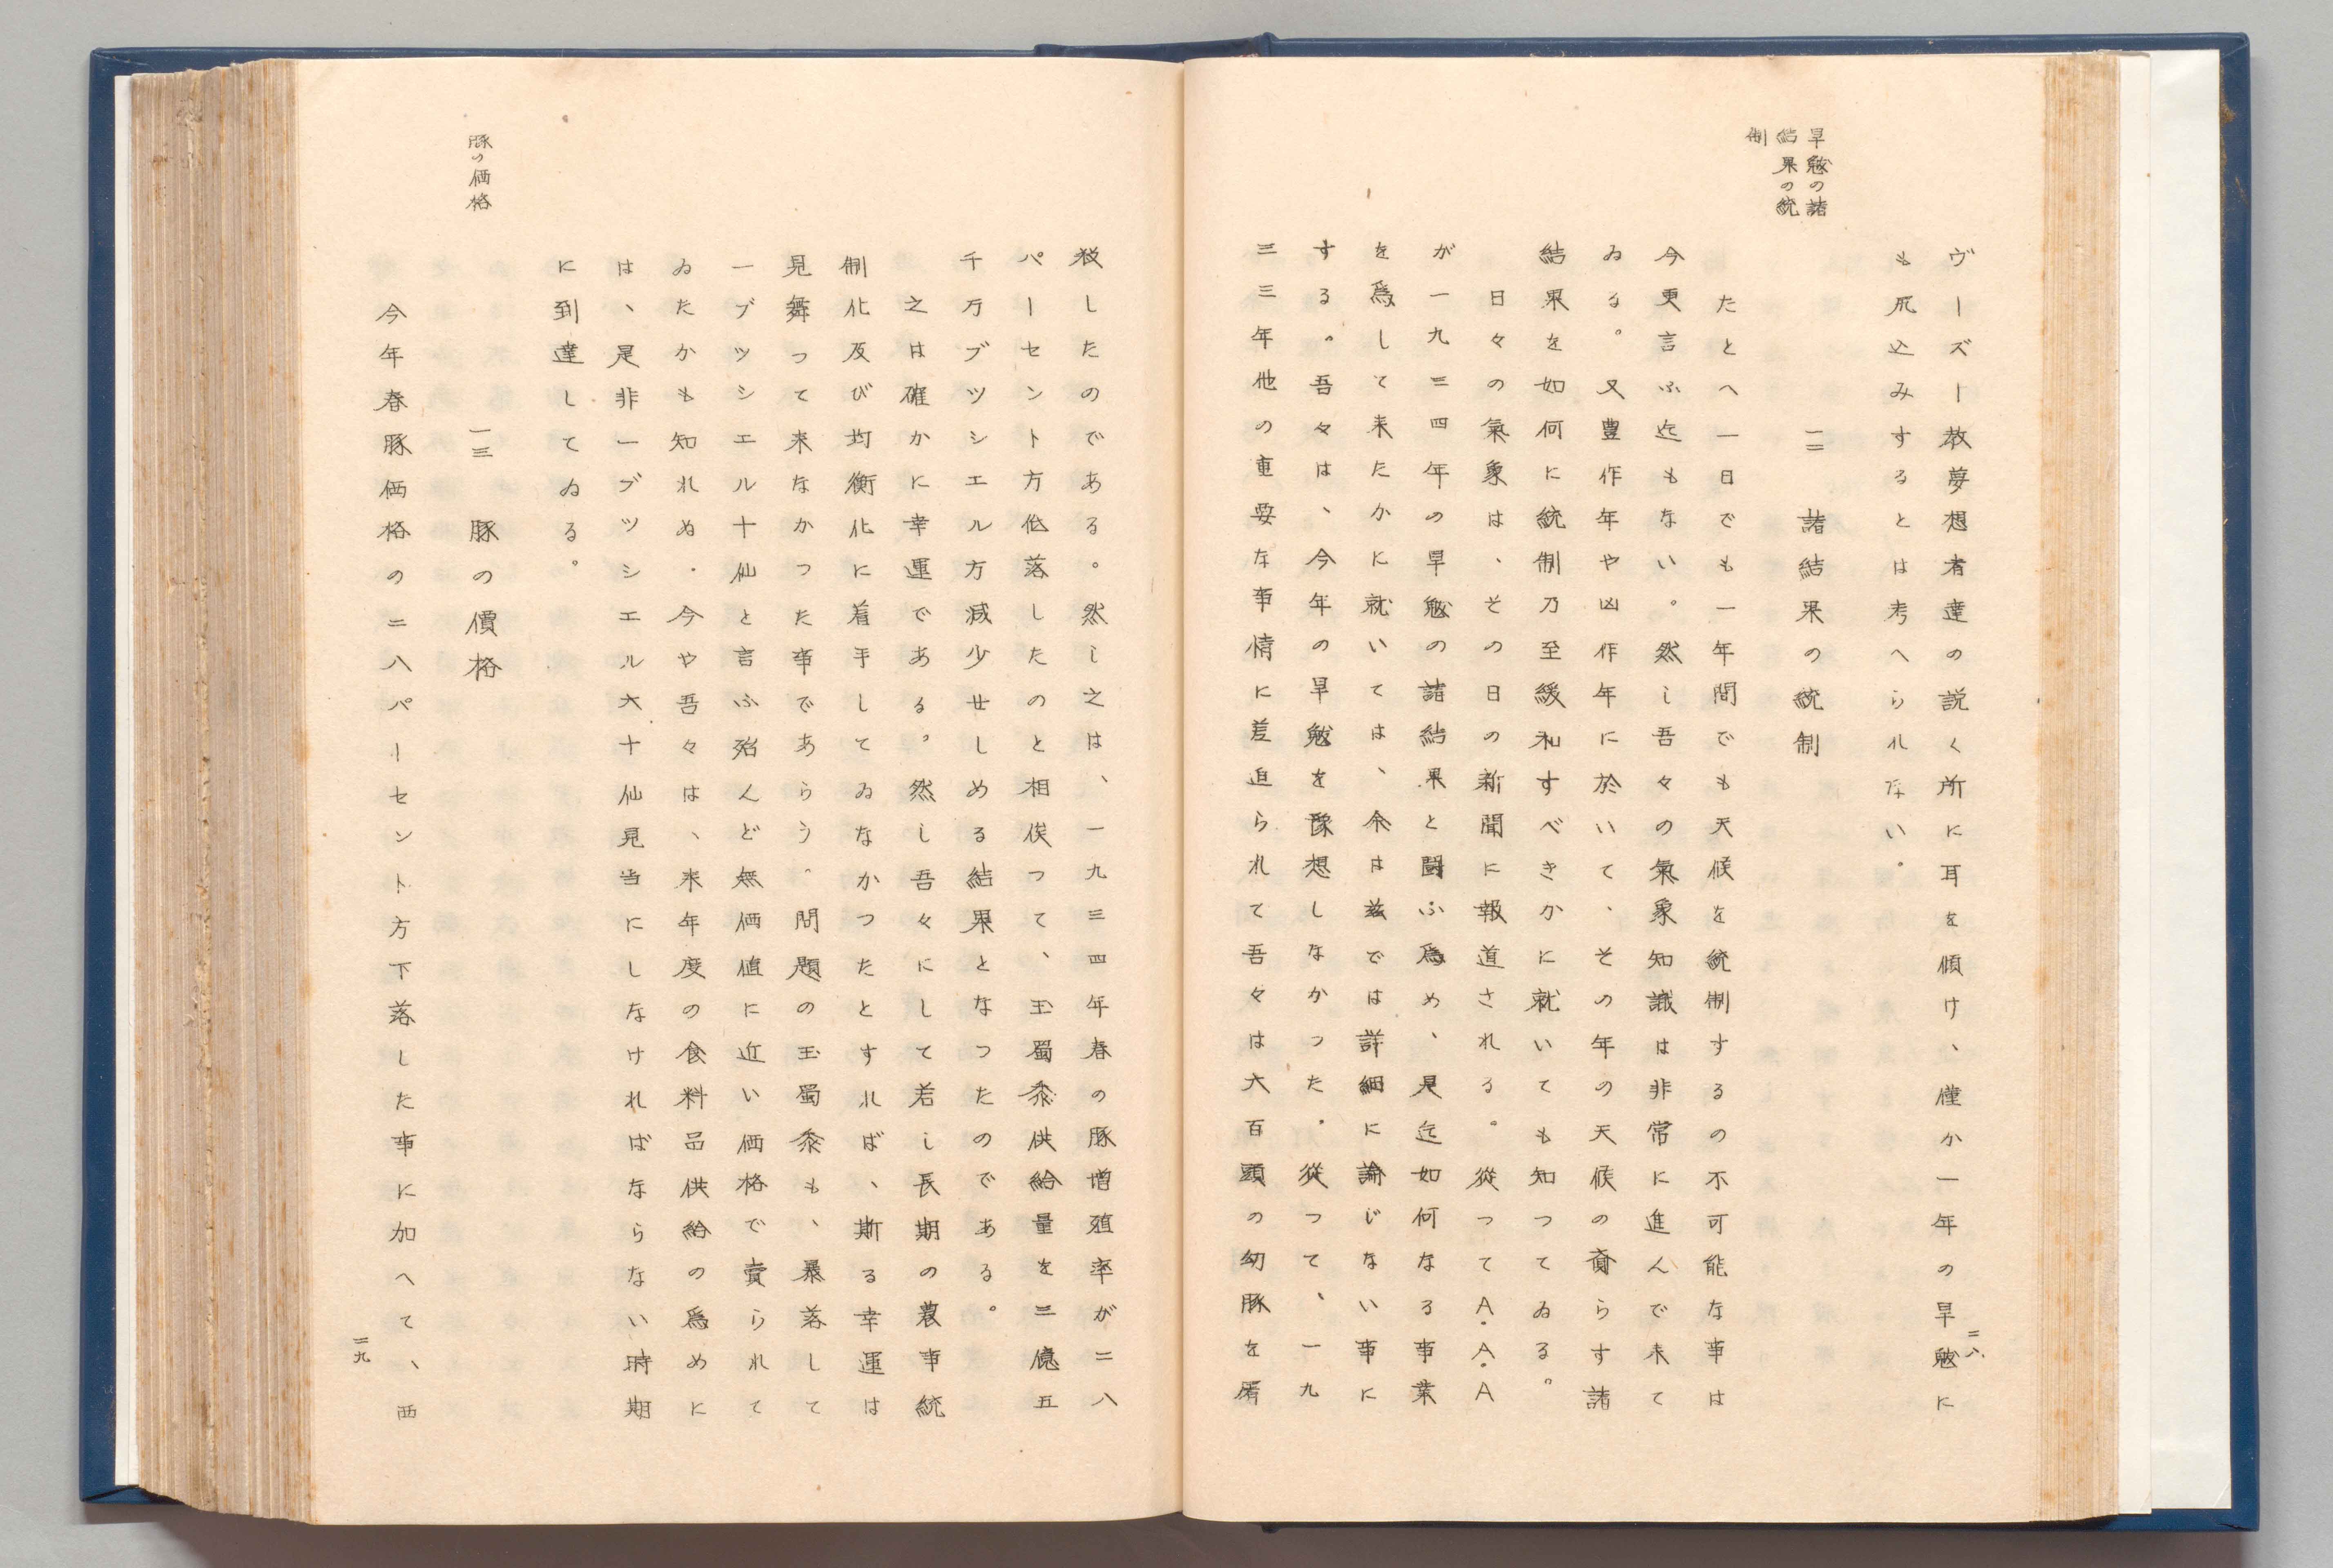 早魃の諸
結果の統
制
ヴーズー教夢想者達の説く所に耳を傾け、僅か一年の早魃に
も尻込みするとは考へられない。
一二　諸結果の統制
たとへ一日でも一年間でも天候を統制するの不可能な事は
今更言ふ迄もない。然し吾々の氣象知識は非常に進んで来て
ゐる。又豊作年や凶作年に於いて、その年の天候の齎らす諸
結果を如何に統制乃至緩和すべきかに就いても知つてゐる。
日々の氣象は、その日の新聞に報道される。從つてA・A・A
が一九三四年の早魃の諸結果と闘ふ爲め、是迄如何なる事業
を爲して来たかに就いては、余は茲では詳細に論じない事に
する。吾々は、今年の早魃を豫想しなかつた。從つて、一九
三三年他の重要な事情に差迫られて吾々は六百頭の幼豚を屠
二八
殺したのである。然し之は、一九三四年春の豚増殖率が二八
パーセント方低落したのと相俟つて、玉蜀黍供給量を二億五
千万ブツシエル方減少せしめる結果となつたのである。
之は確かに幸運である。然し吾々にして若し長期の農事統
制化及び均衡化に着手してゐなかつたとすれば、斯る幸運は
見舞つて来なかつた事であらう。問題の玉蜀黍も、暴落して
一ブツシエル十仙と言ふ殆んど無価値に近い価格で賣られて
ゐたかも知れぬ。今や吾々は、来年度の食料品供給の爲めに
は、是非一ブツシエル六十仙見当にしなければならない時期
に到達してゐる。
豚の価格
一三　豚の價格
今年春豚価格の二八パーセント方下落した事に加へて、西
二九